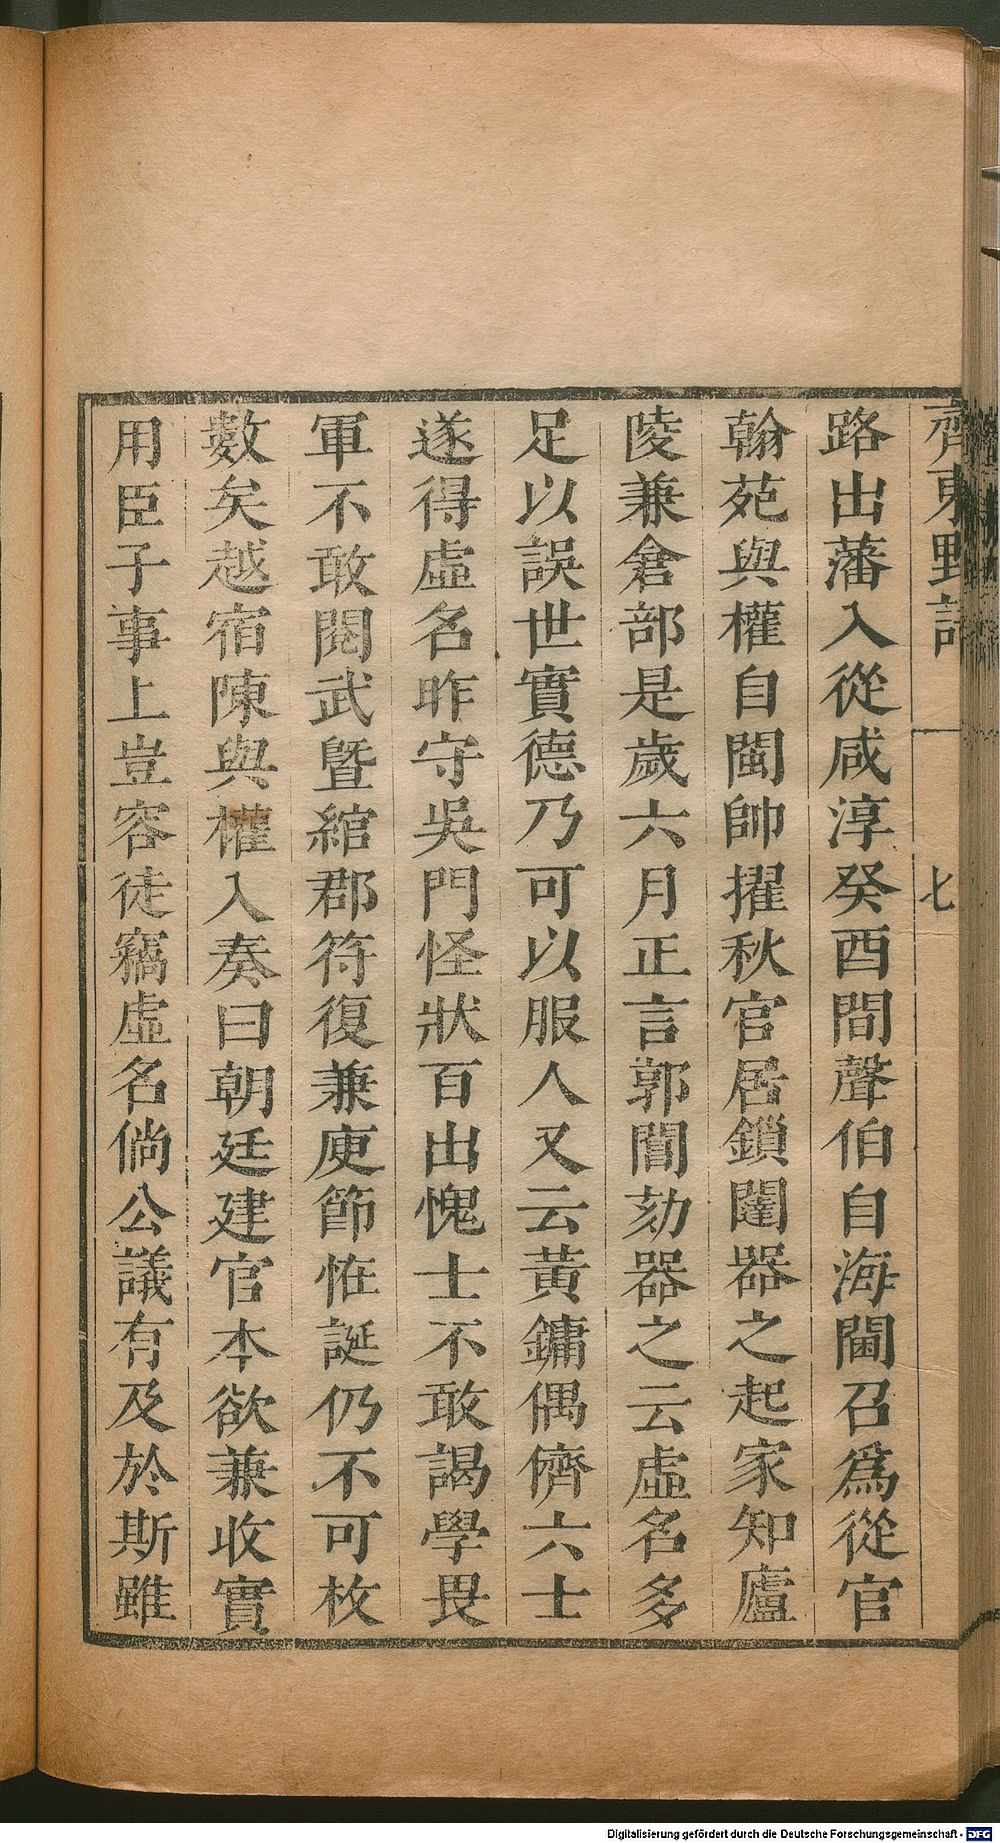 齊東野語
七
路出藩入從咸淳癸酉間聲伯自海閫召爲從官
翰苑與權自閩帥擢秋官居鎖闥器之起家知廬
陵兼倉部是歲六月正言郭閶劾器之云虛名多
足以誤世實德乃可以服人又云黃鏞偶儕六士
遂得虛名昨守吳門怪狀百出愧士不敢謁學畏
軍不敢閱武曁綰郡符復兼庾節恠誕仍不可枚
數矣越宿陳與權入奏曰朝廷建官本欲兼收實
用臣子事上豈容徒竊虛名倘公議有及於斯雖
Digitalisierung gefördert durch die Deutsche Forschungsgemeinschaft - DFG